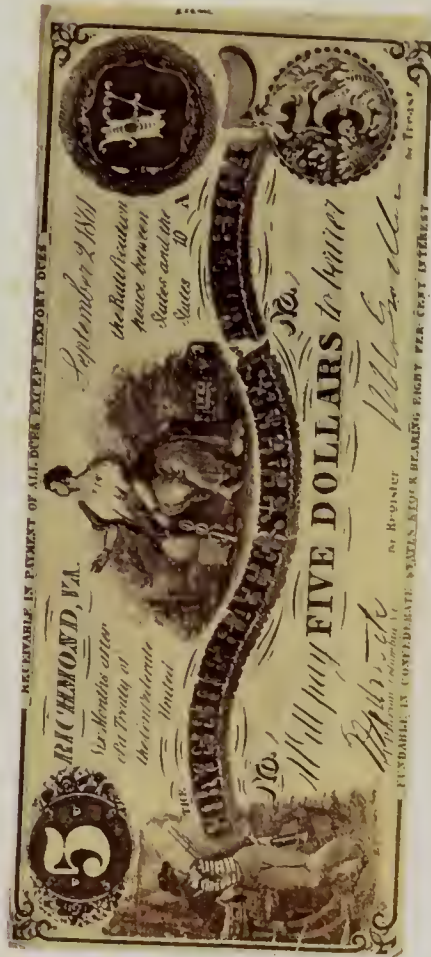 RECEIVABLE IN PAYMENT OF ALL DUES EXCEPT EXPORT DUES
5
RICHMOND, VA.
September 2 1861
Six Months after
the Ratification
of a Treaty of
peace between
the Confederate
States and the
United
States
10 A
THE
CONFEDERATE STATES OF AMERICA
No.
No.
Will pay FIVE DOLLARS to bearer
for Register
for Treasr
FUNDABLE IN CONFEDERATE STATES STOCK BEARING EIGHT PER CENT INTEREST